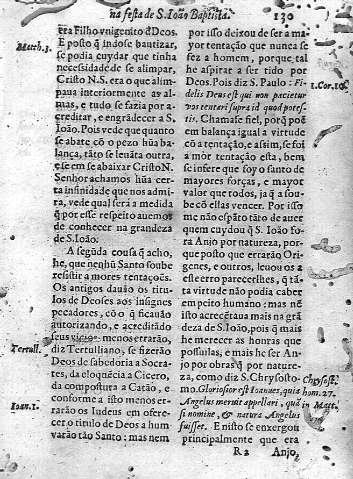 na festa de S. Ioão Baptista. 130
era Filho vnigenito dDeos.
Matth. 3.
E posto q̃ indose bautizar,
se podia cuydar que tinha
necessidade de se alimpar,
Cristo N.S. era o que alim-
paua interiormente as al-
mas, e tudo se fazia por a-
creditar, e engrãdecer a S.
Ioão. Pois vede que quanto
se abate cõ o pezo hũa ba-
lança, tãto se leuãta outra,
e se em se abaixar CristoN.
Senhor achamos hũa cer-
ta infinidade que nos admi-
ra, vede qual será a medida
q̃ por esse respeito auemos
de conhecer na grandeza
de S. Ioão.
A segũda cousa q̃ acho,
he, que nenhũ Santo soube
resistir a mores tentaçoẽs.
Os antigos dauão os titu-
los de Deoses aos insignes
pecadores, cõ o q̃ ficauão
autorizando, e acreditãdo
seus vicios: menos errarão,
Tertull.
diz Tertulliano, se fizerão
Deos de sabedoria a Socra-
tes, da eloquẽcia a Cicero,
da compostura a Catão, e
conforme a isto menos er-
Ioan. 1.
rarão os Iudeus em ofere-
cer o titulo de Deos a hum
varão tão Santo: mas nem
por isso deixou de ser a ma-
yor tentação que nunca se
fez a homem, porque tal
he aspirar a ser tido por
Deos. Pois diz S. Paulo: Fi-
delis Deus est qui non pacietur
1. Cor. 10.
vos tentari supra id quod potes-
tis. Chamase fiel, porq̃ poẽ
em balança igual a virtude
cõ a tentação, e assim, se foi
a mòr tentação esta, bem
se infere que soy o santo de
mayores forças, e mayor
valor que todos, ja q̃ a sou-
be cõ ellas vencer. Por isso
me não espãto tãto de auer
quem cuydou q̃ S. Ioão fo-
ra Anjo por natureza, por-
que posto que errarão Ori-
genes, e outros, leuou os a
este erro parecerlhes, q̃ tã-
ta virtude não podia caber
em peito humano: mas nẽ
isto acrecẽtaua mais na grã
deza de S. Ioão, pois q̃ mais
he merecer as honras que
possuîas, e mais he ser An-
jo por obras q̃ por natureza,
como diz S. Chrysosto-
Chrysost.
mo. Gloriosior est Ioannes, quia
hom. 27.
Angelus meruit appellari, quã
in Matt.
si nomine, & natura Angelus
fuisset. E nisto se enxergou
principalmente que era
R 2 Anjo,